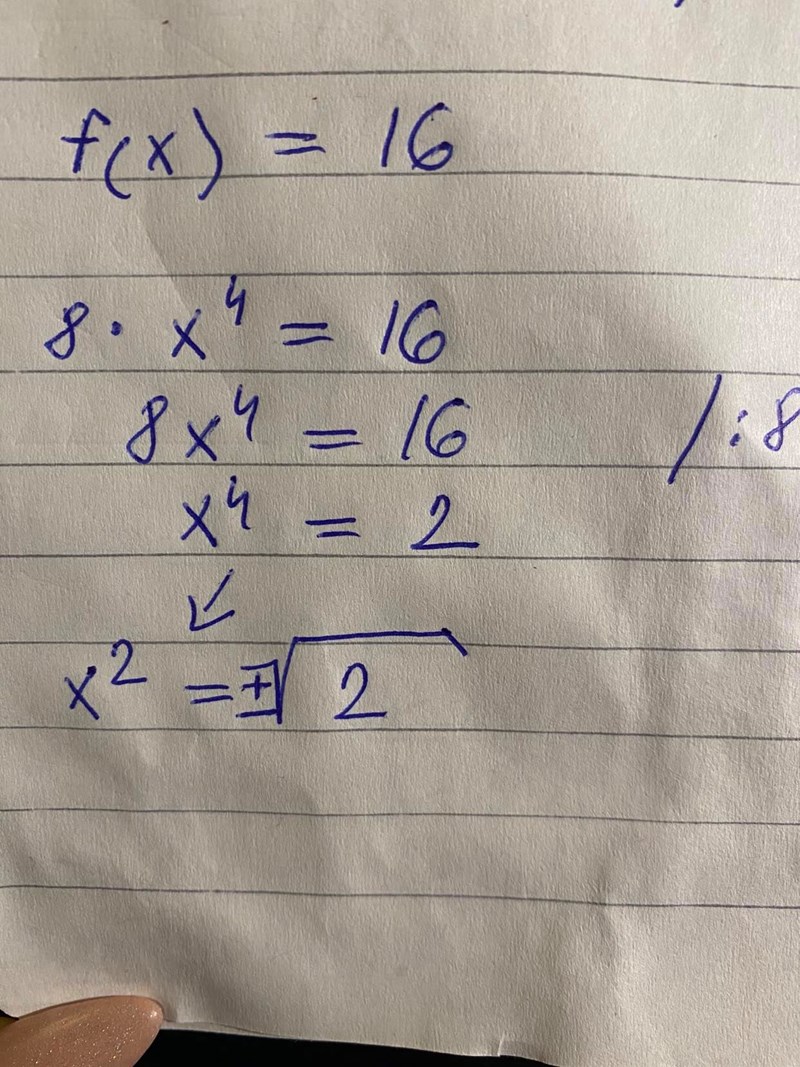 f(x) = 16
8 · x⁴ = 16
8x⁴ = 16 /:8
x⁴ = 2
↙
x² = ±√2